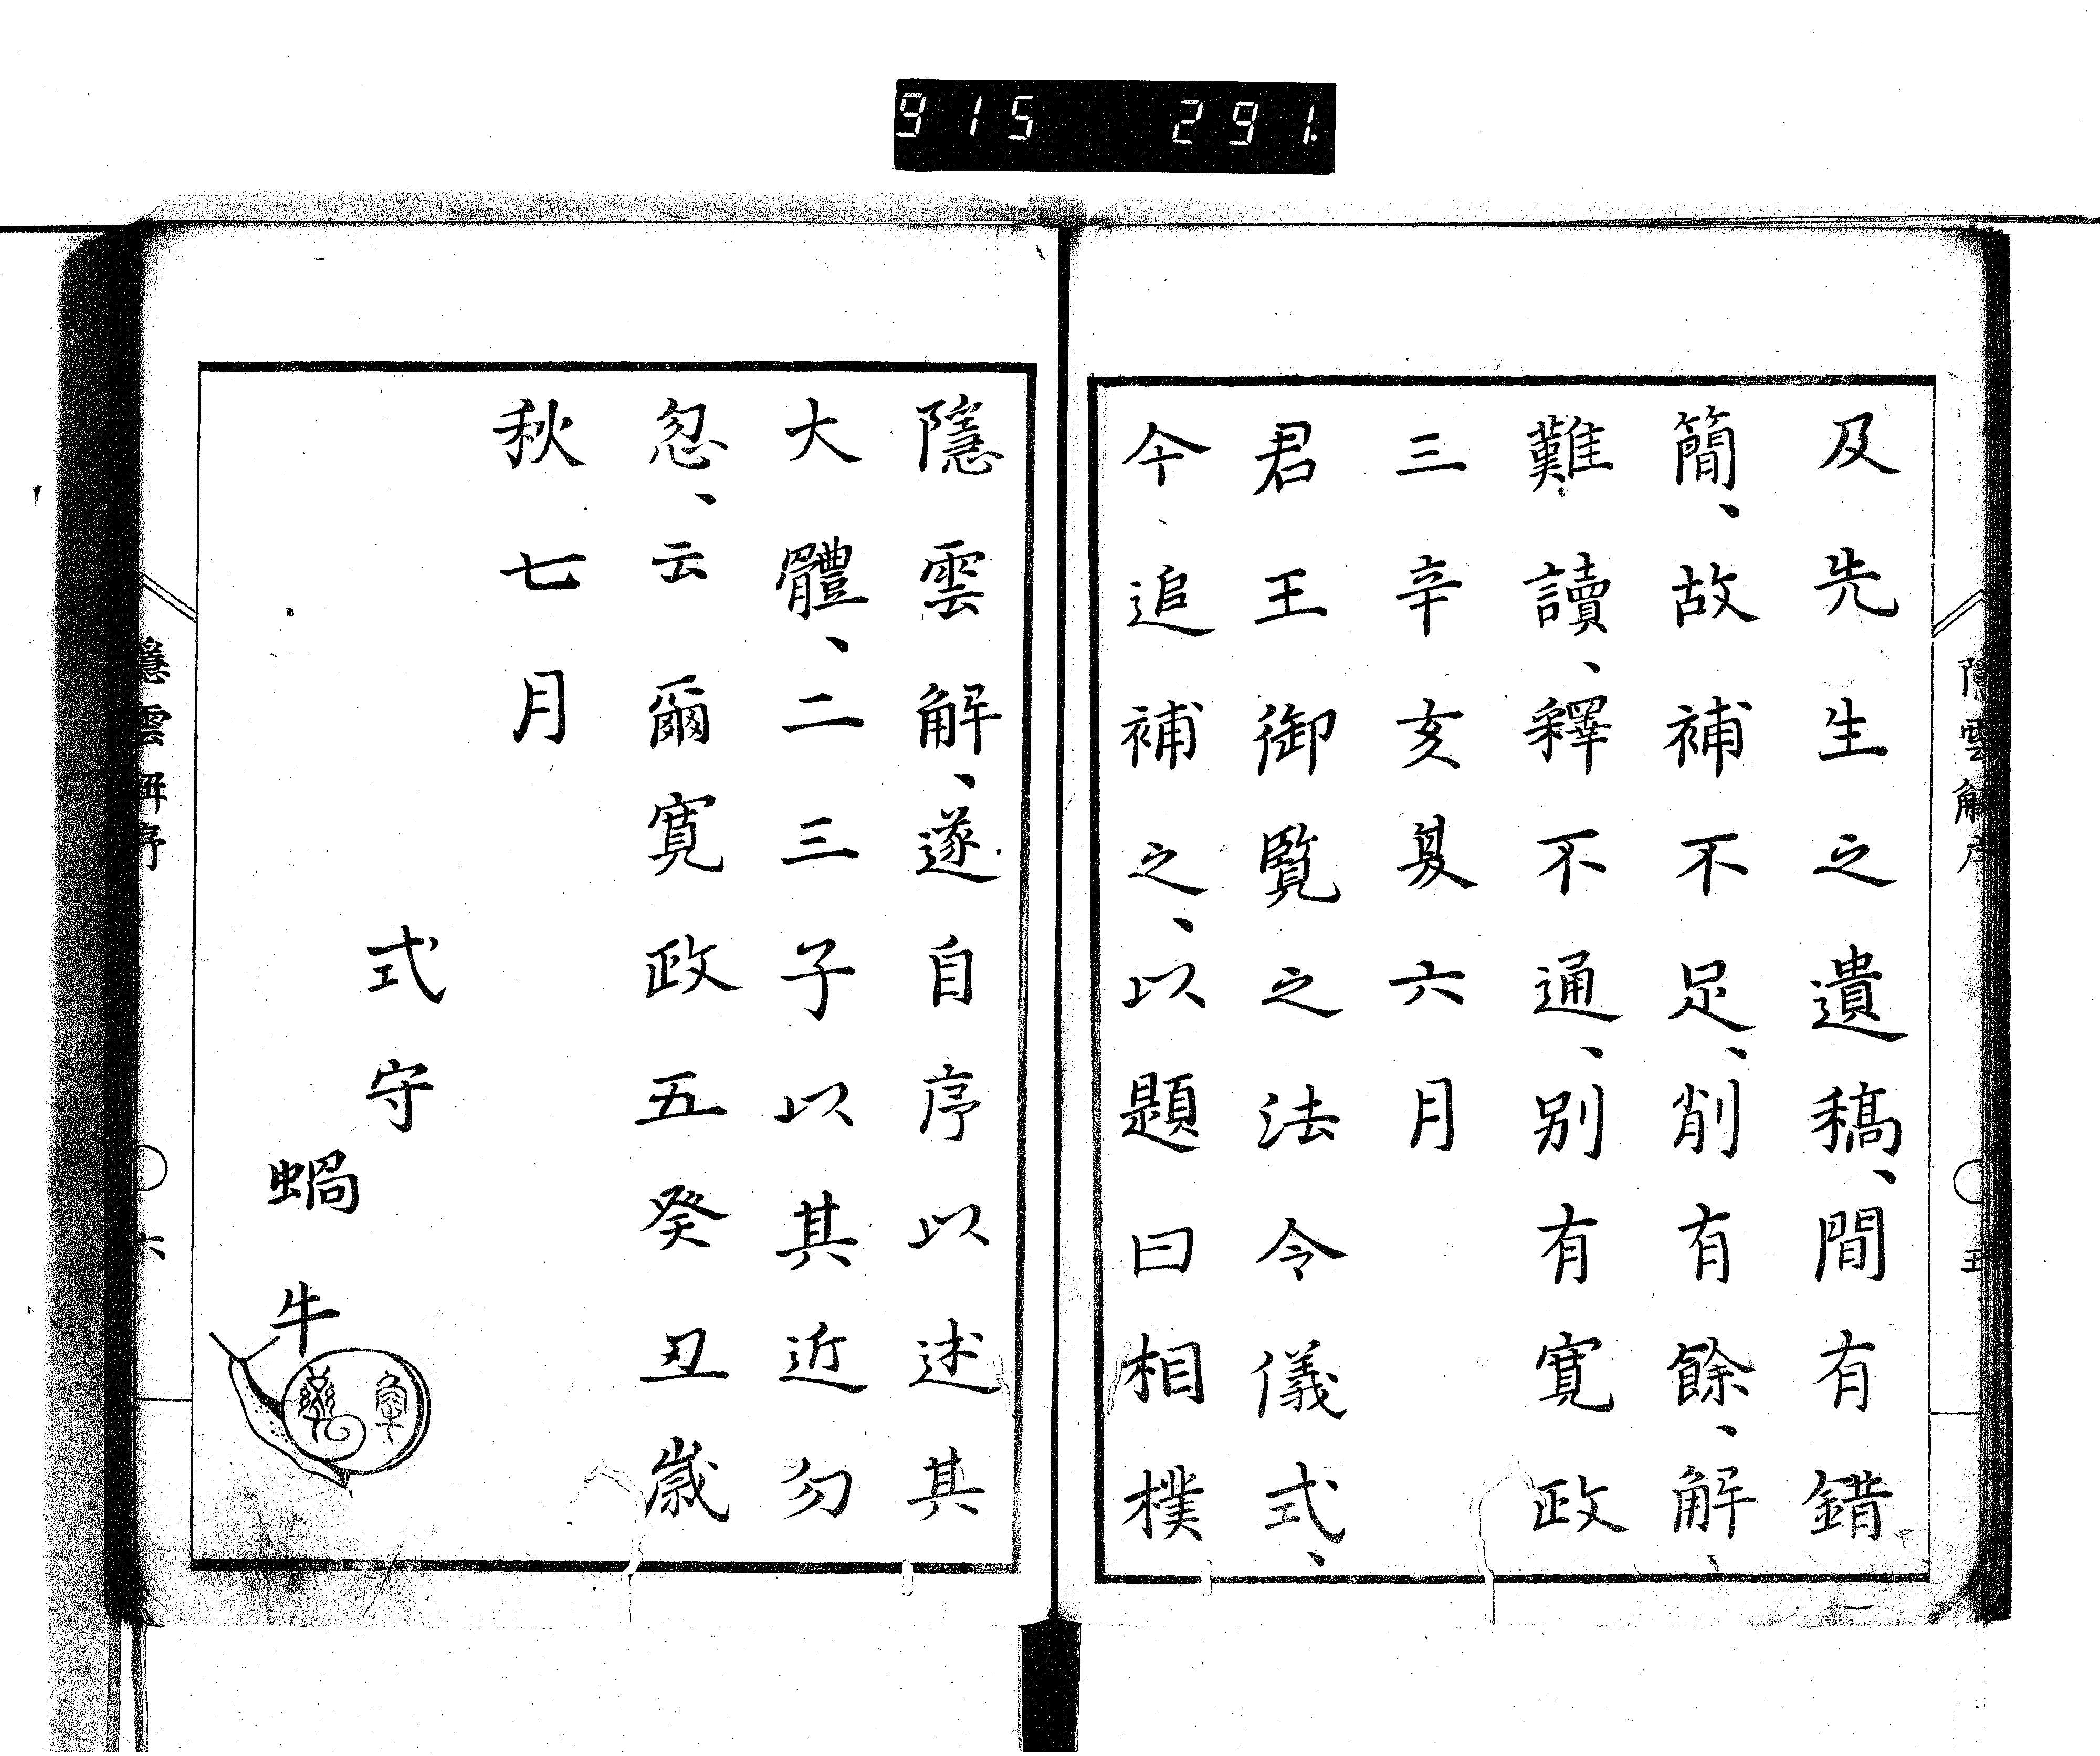 915 291
隱雲解序
五
及先生之遺稿、間有錯
簡、故補不足、削有餘、解、
難讀、釋不通、別有寛政
三辛亥夏六月
君王御覽之法令儀式、
今追補之、以題曰相撲
隱雲解、遂自序以述其
大體、二三子以其近勿
忽、云爾寛政五癸丑歲
秋七月
式守
蝸牛
隱雲解序
六